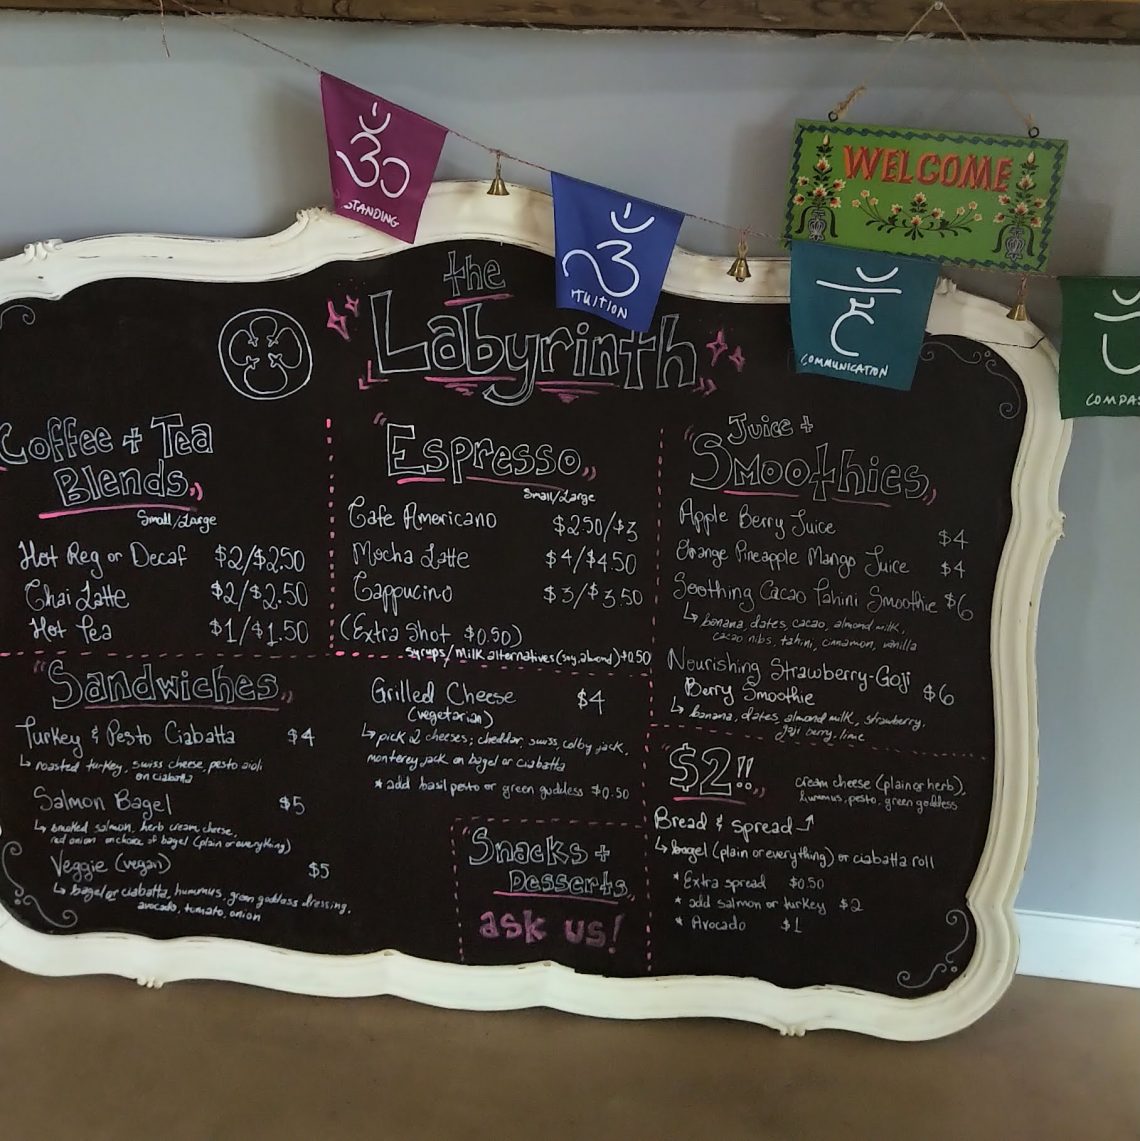 STANDING
ITUITION
WELCOME
COMMUNICATION
COMPAS
the
Labyrinth
Coffee + Tea
Blends
Small/Large
Hot Reg or Decaf $2/$2.50
Chai Latte $2/$2.50
Hot Tea $1/$1.50
"Espresso"
Small/Large
Cafe Americano $2.50/$3
Mocha Latte $4/$4.50
Cappucino $3/$3.50
(Extra Shot $0.50)
Syrups/Milk alternatives (soy, almond) +0.50
"Juice +
Smoothies"
Apple Berry Juice $4
Orange Pineapple Mango Juice $4
Soothing Cacao Tahini Smoothie $6
↳ banana, dates, cacao, almond milk,
cacao nibs, tahini, cinnamon, vanilla
Nourishing Strawberry-Goji
Berry Smoothie $6
↳ banana, dates, almond milk, strawberry,
goji berry, lime
"Sandwiches"
Turkey & Pesto Ciabatta $4
↳ roasted turkey, swiss cheese, pesto aioli
on ciabatta
Salmon Bagel $5
↳ smoked salmon, herb cream cheese,
red onion on choice of bagel (plain or everything)
Veggie (vegan) $5
↳ bagel or ciabatta, hummus, green goddess dressing,
avocado, tomato, onion
Grilled Cheese $4
(vegetarian)
↳ pick 2 cheeses; cheddar, swiss, colby jack,
monterey jack on bagel or ciabatta
* add basil pesto or green goddess $0.50
Snacks +
Desserts
ask us!
"$2!!"
cream cheese (plain or herb),
hummus, pesto, green goddess
Bread & spread
↳ bagel (plain or everything) or ciabatta roll
* Extra spread $0.50
* add salmon or turkey $2
* Avocado $1